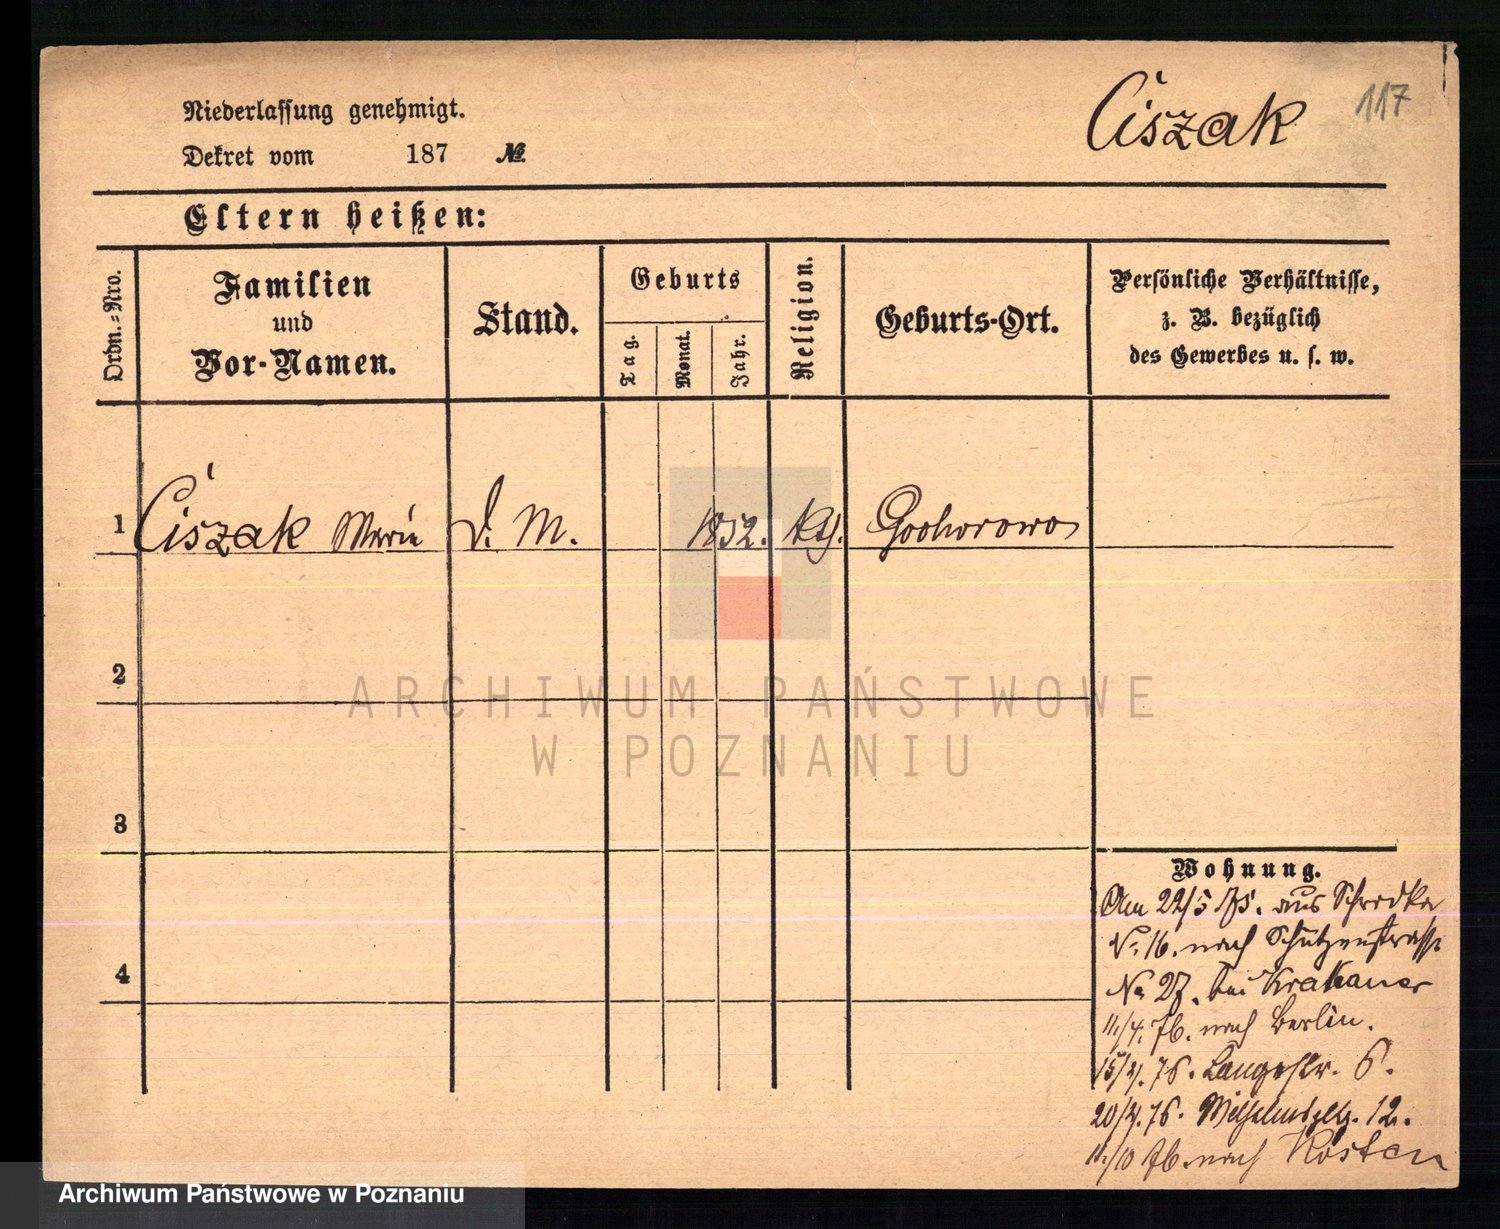 Niederlassung genehmigt.
Dekret vom 187 №
Ciszak 117
Eltern heißen:
Ordn.-Nro.
Familien
und
Vor-Namen.
Stand.
Geburts
Tag.
Monat.
Jahr.
Religion.
Geburts-Ort.
Persönliche Verhältnisse,
z. B. bezüglich
des Gewerbes u. s. w.
1 Ciszak Maria D. M. 1852. kth. Gochorowo
2
3
4
ARCHIWUM PAŃSTWOWE
W POZNANIU
Wohnung.
Am 22/5 75. aus Schrodka
N. 16. nach Schützenstrasse
No 27. bei Krakauer
11./4. 76. nach Berlin.
15/4. 76. Langestr. 6.
20/4. 76. Wilhelmspltz. 12.
11./10 76. nach Kosten
Archiwum Państwowe w Poznaniu